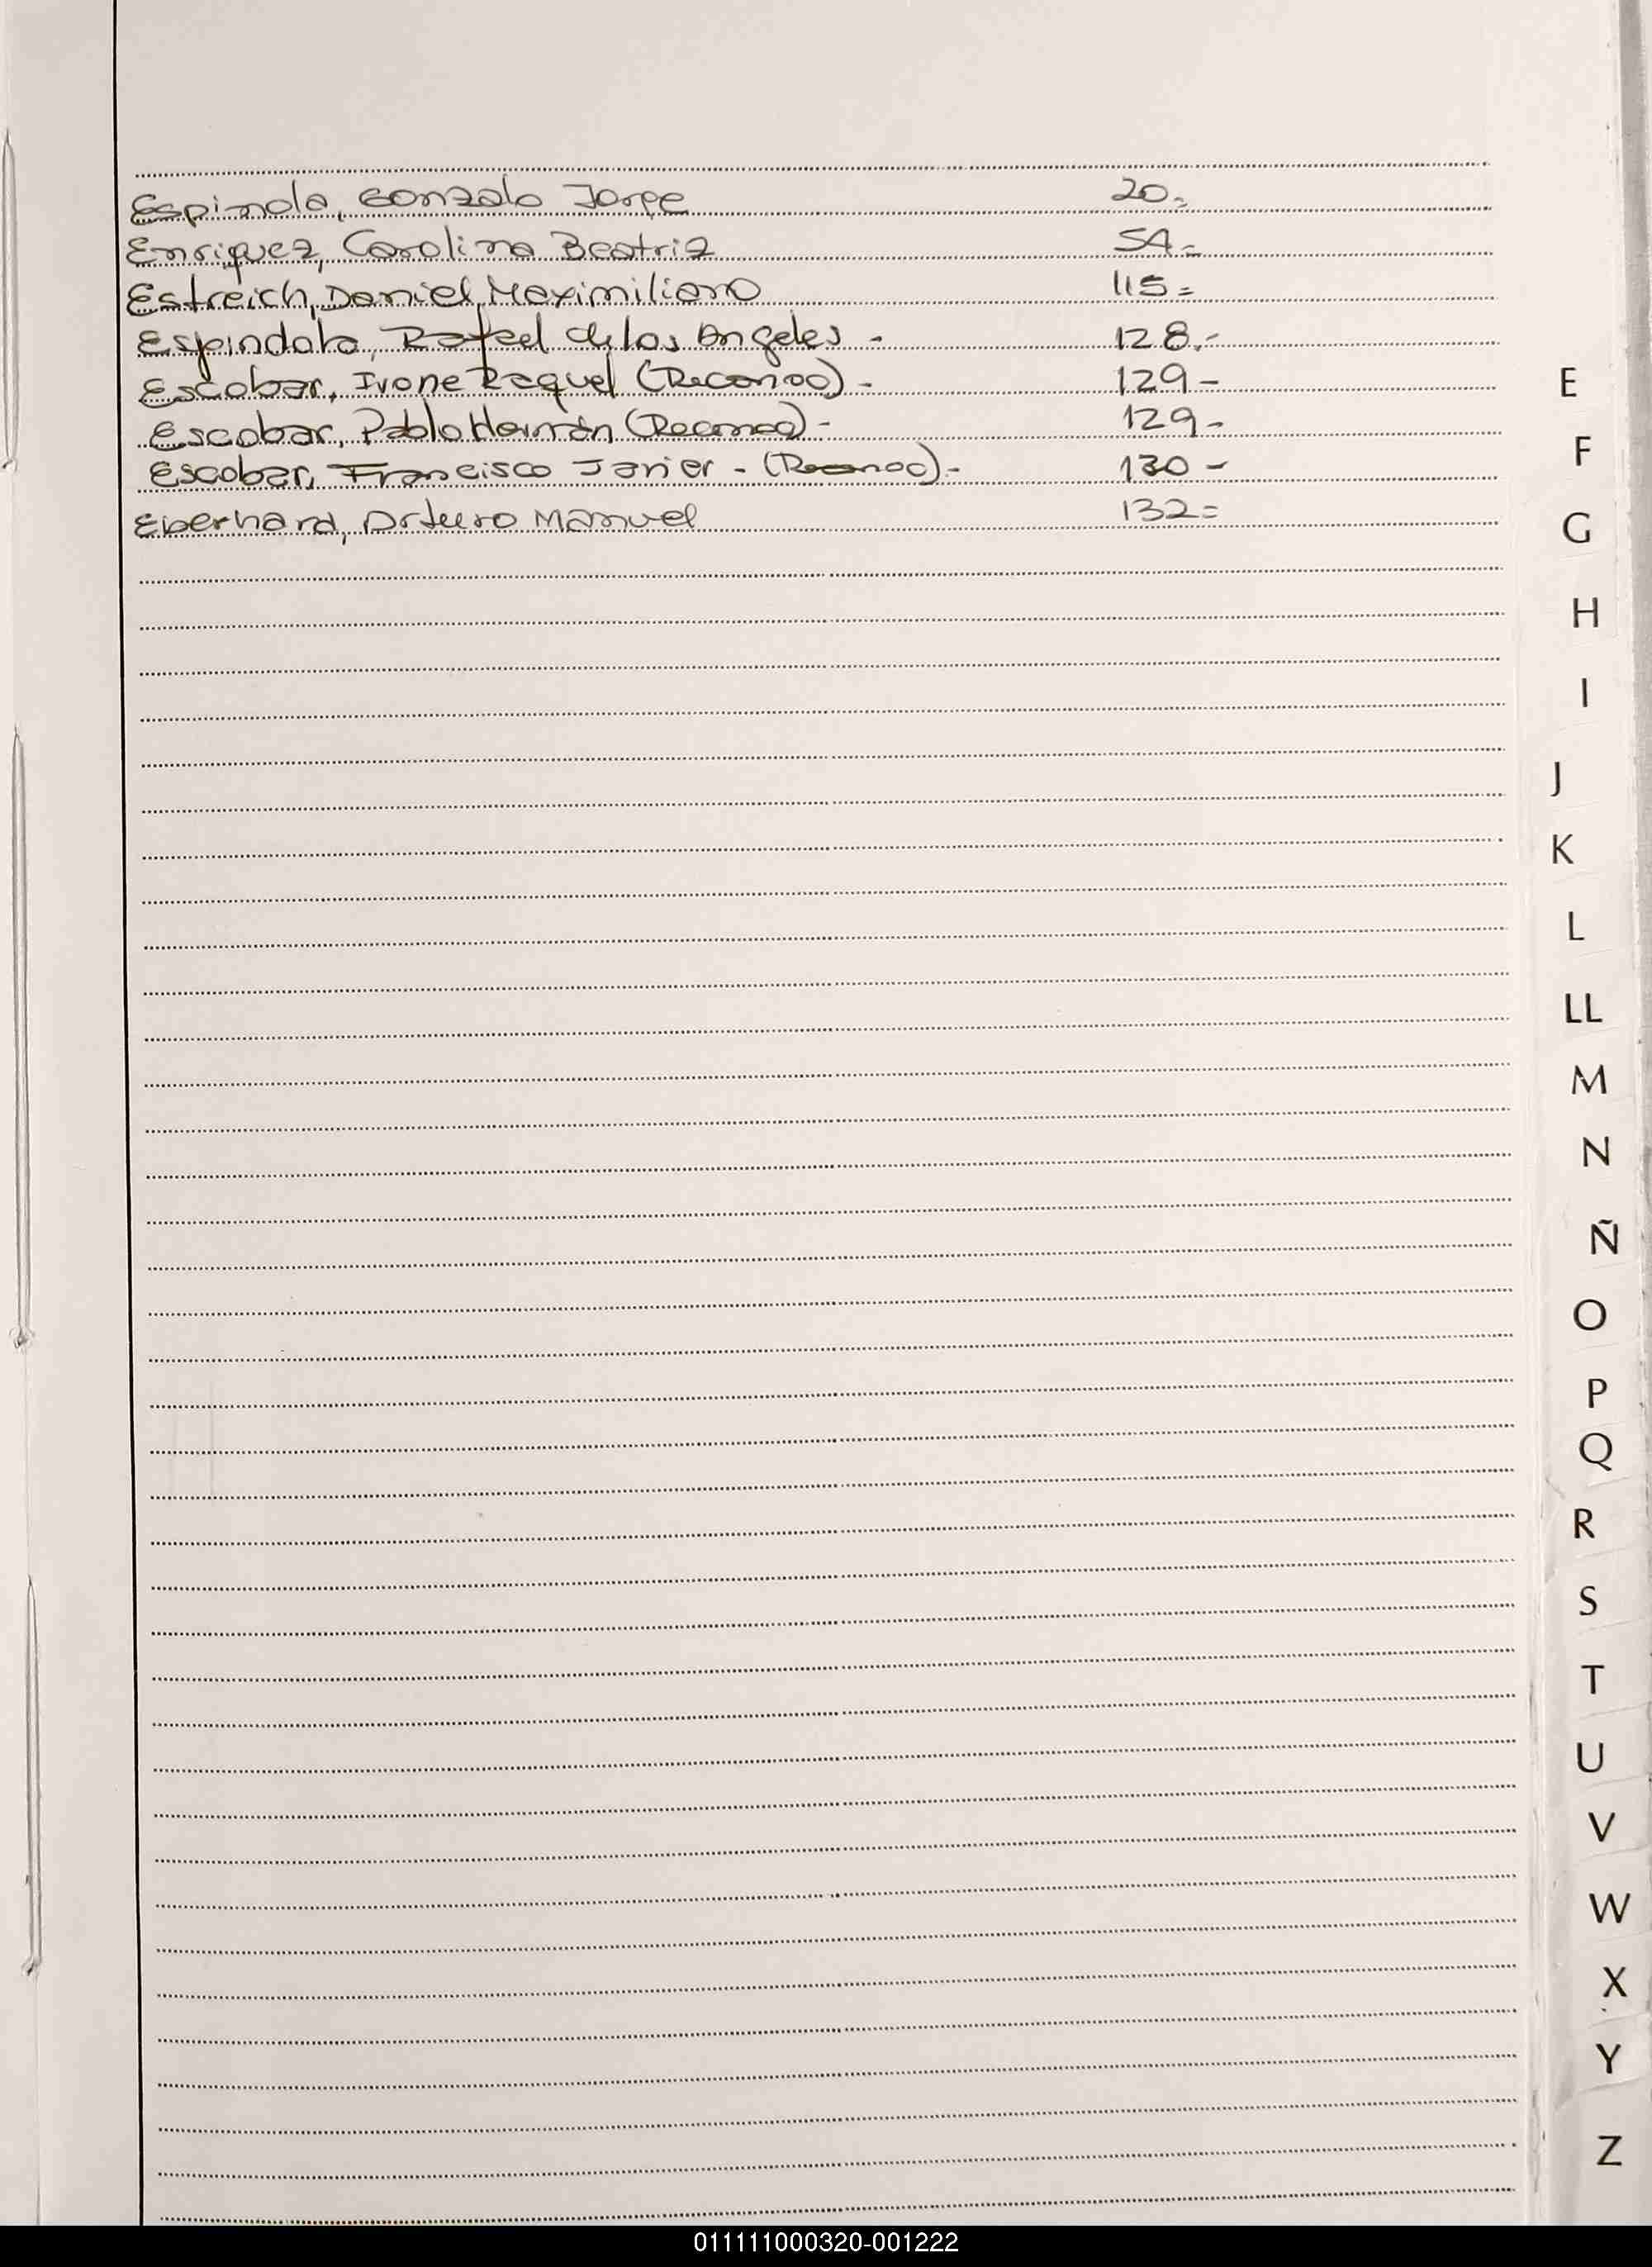 Espinola, Gonzalo Jorge 20.=
Enriquez, Carolina Beatriz 54.=
Estreich, Daniel Maximiliano 115=
Espindola, Rafael de los Angeles - 128.-
Escobar, Ivone Raquel (Reconoc) - 129-
Escobar, Pablo Hernán (Reconoc) - 129-
Escobar, Francisco Javier - (Reconoc) - 130-
Eberhard, Arturo Manuel 132=
E
F
G
H
I
J
K
L
LL
M
N
Ñ
O
P
Q
R
S
T
U
V
W
X
Y
Z
011111000320-001222